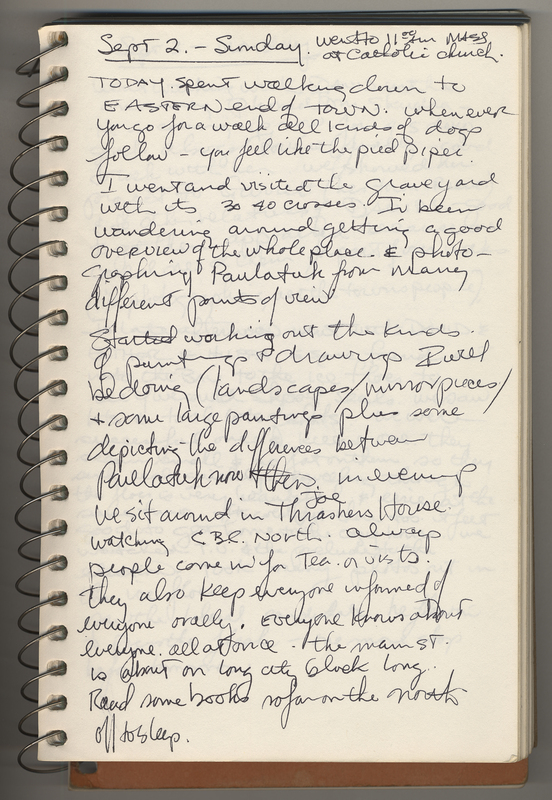 Sept 2. - Sunday. went to 11 am MASS
at Catholic church.
TODAY. spent walking down to
EASTERN end of TOWN. whenever
you go for a walk all kinds of dogs
follow - you feel like the pied piper.
I went and visited the graveyard
with its 30 40 crosses. I'v been
wandering around getting a good
overview of the whole place. & photo-
graphing Paulatuk from many
different points of view
Started working out the kinds.
of paintings & drawings I will
be doing (landscapes/mirror pieces/
+ some large paintings plus some
depicting the differences between
Paulatuk now then, in evening
we sit around in Joe Thrashers House.
watching CBC. North. always
people come in for Tea. or visits.
they also keep everyone informed of
everyone orally. everyone knows about
everyone. all at once. the main st.
is about on long city block long.
Read some books so far on the north
off to sleep.